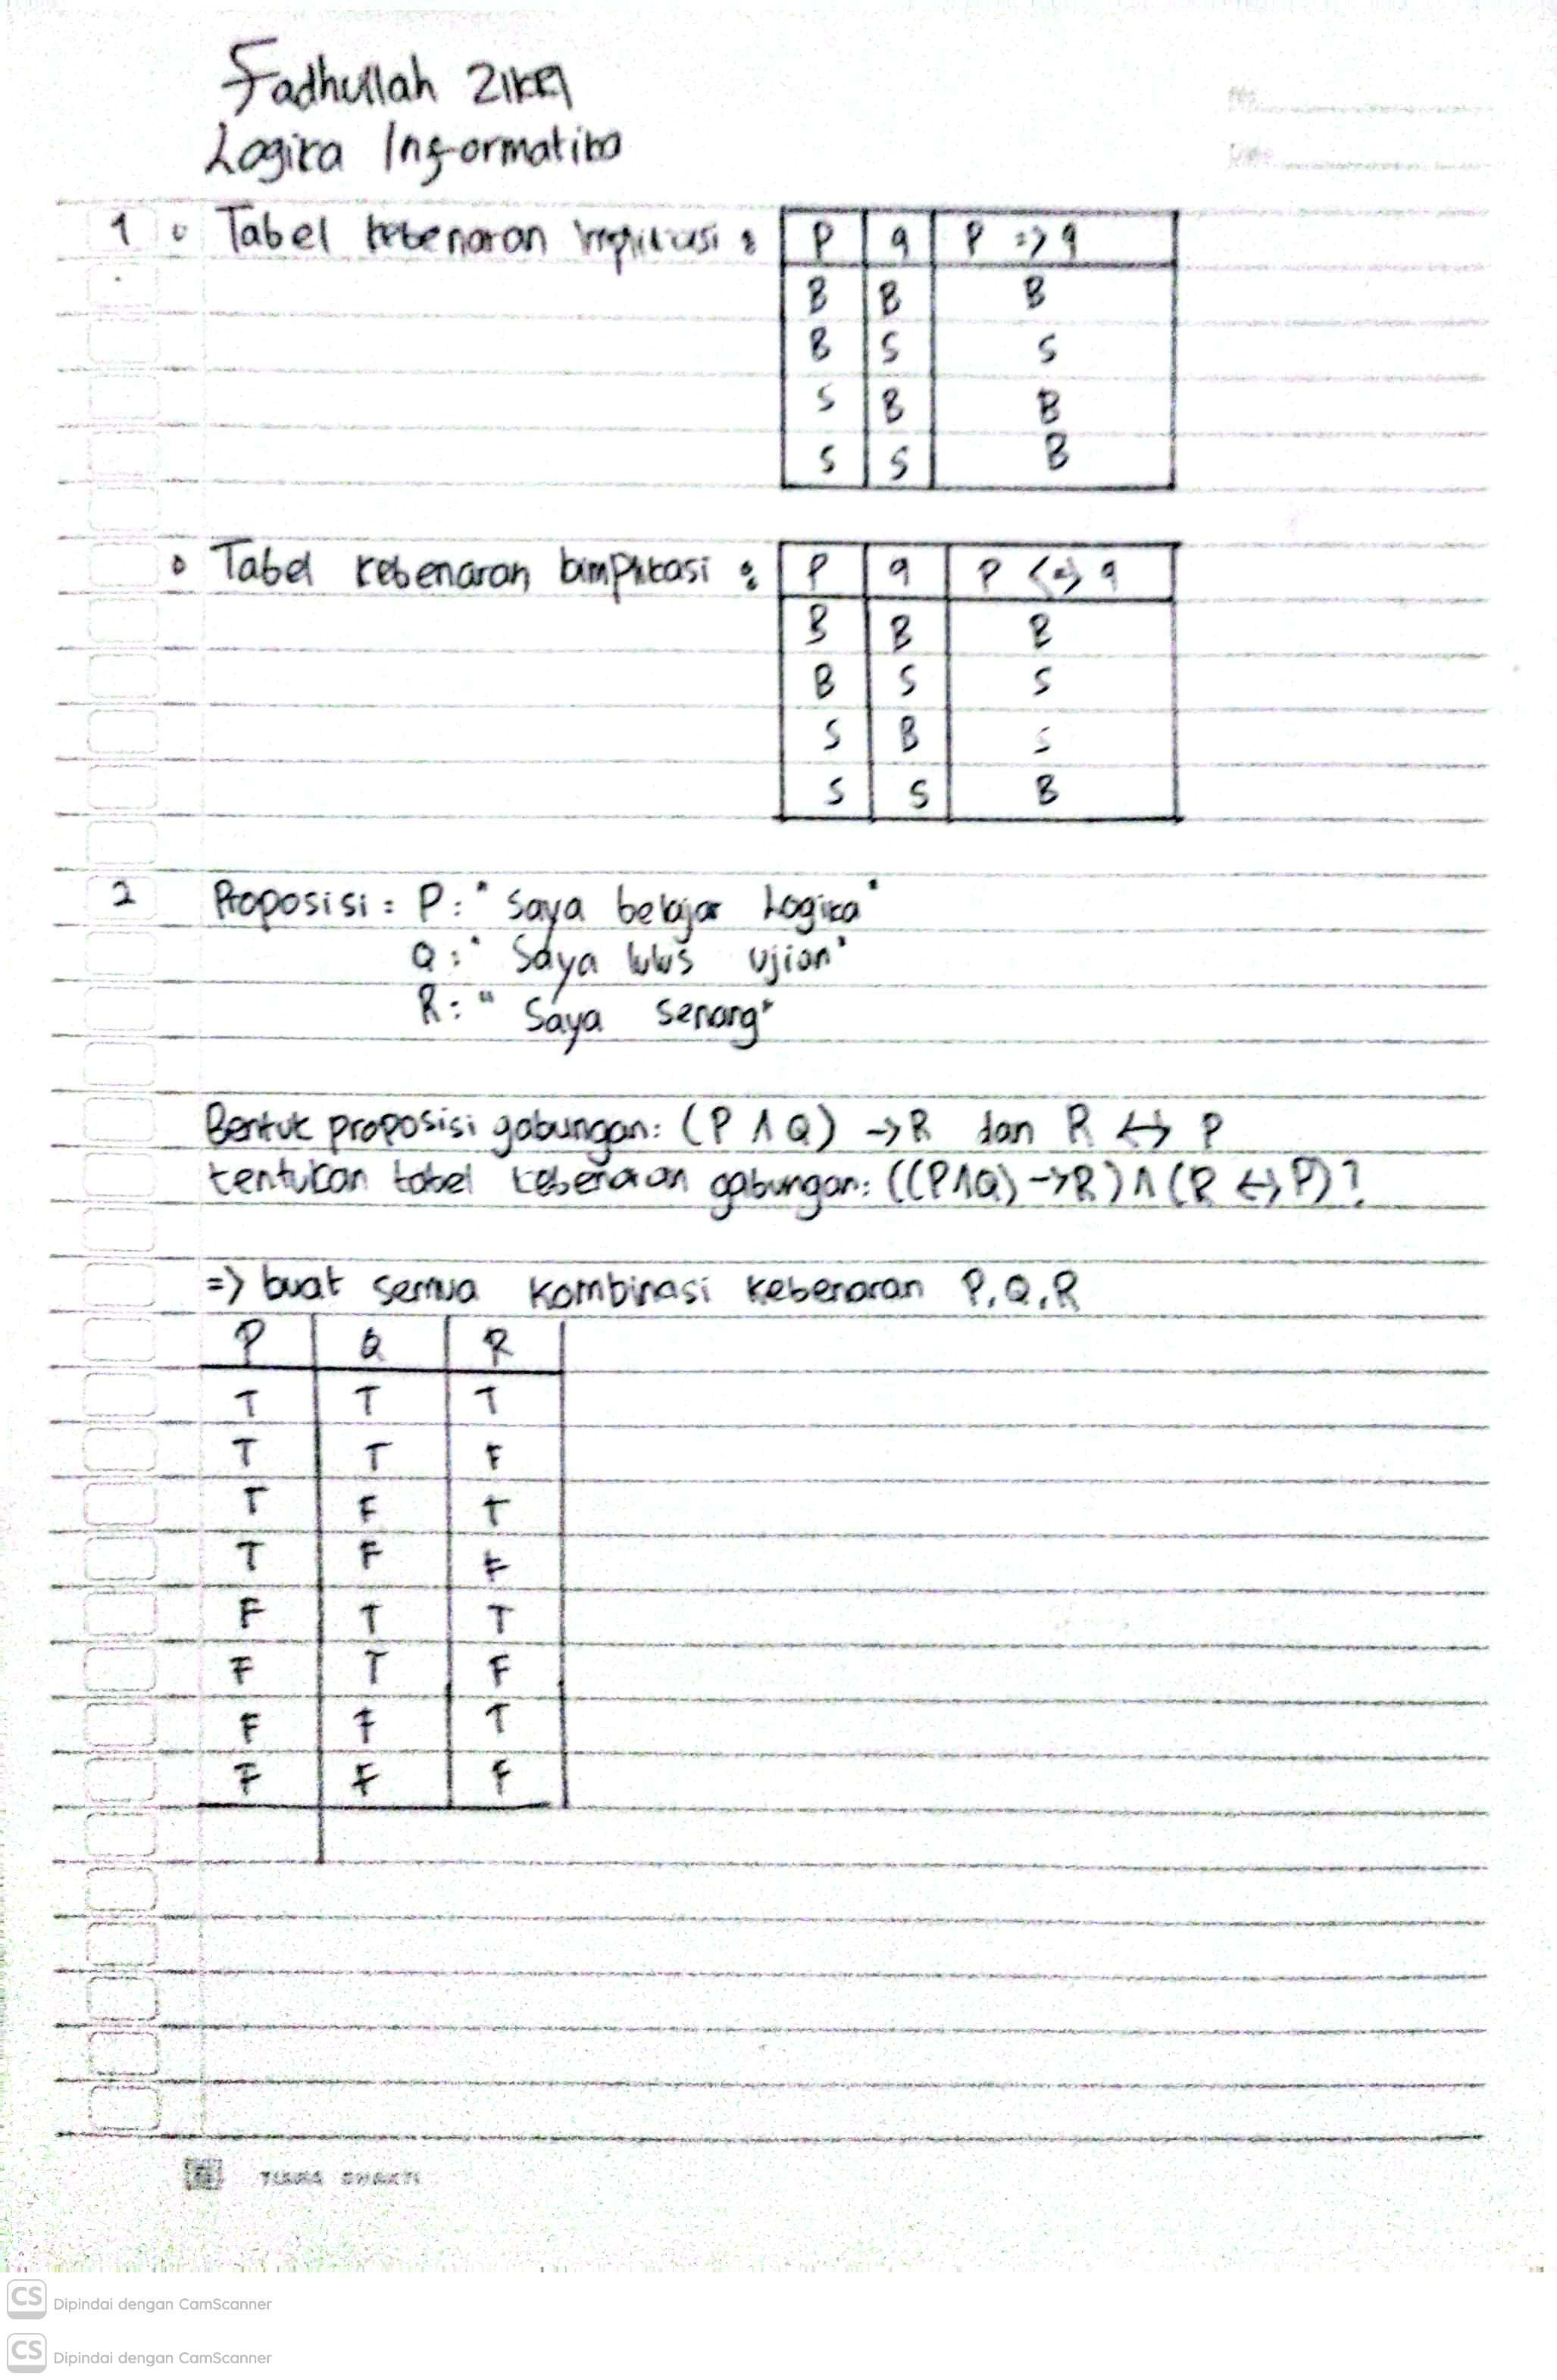 Fadhullah Zikri
Logika Informatika
1 • Tabel kebenaran implikasi :
P q P => q
B B B
B S S
S B B
S S B
• Tabel kebenaran bimplikasi :
P q P <=> q
B B B
B S S
S B S
S S B
2 Proposisi = P : "Saya belajar Logika"
Q : "Saya lulus ujian"
R : "Saya senang"
Bentuk proposisi gabungan: (P ∧ Q) → R dan R ↔ P
tentukan tabel kebenaran gabungan: ((P∧Q) → R) ∧ (R ↔ P) ?
=> buat semua kombinasi kebenaran P, Q, R
P Q R
T T T
T T F
T F T
T F F
F T T
F T F
F F T
F F F
CS Dipindai dengan CamScanner
CS Dipindai dengan CamScanner